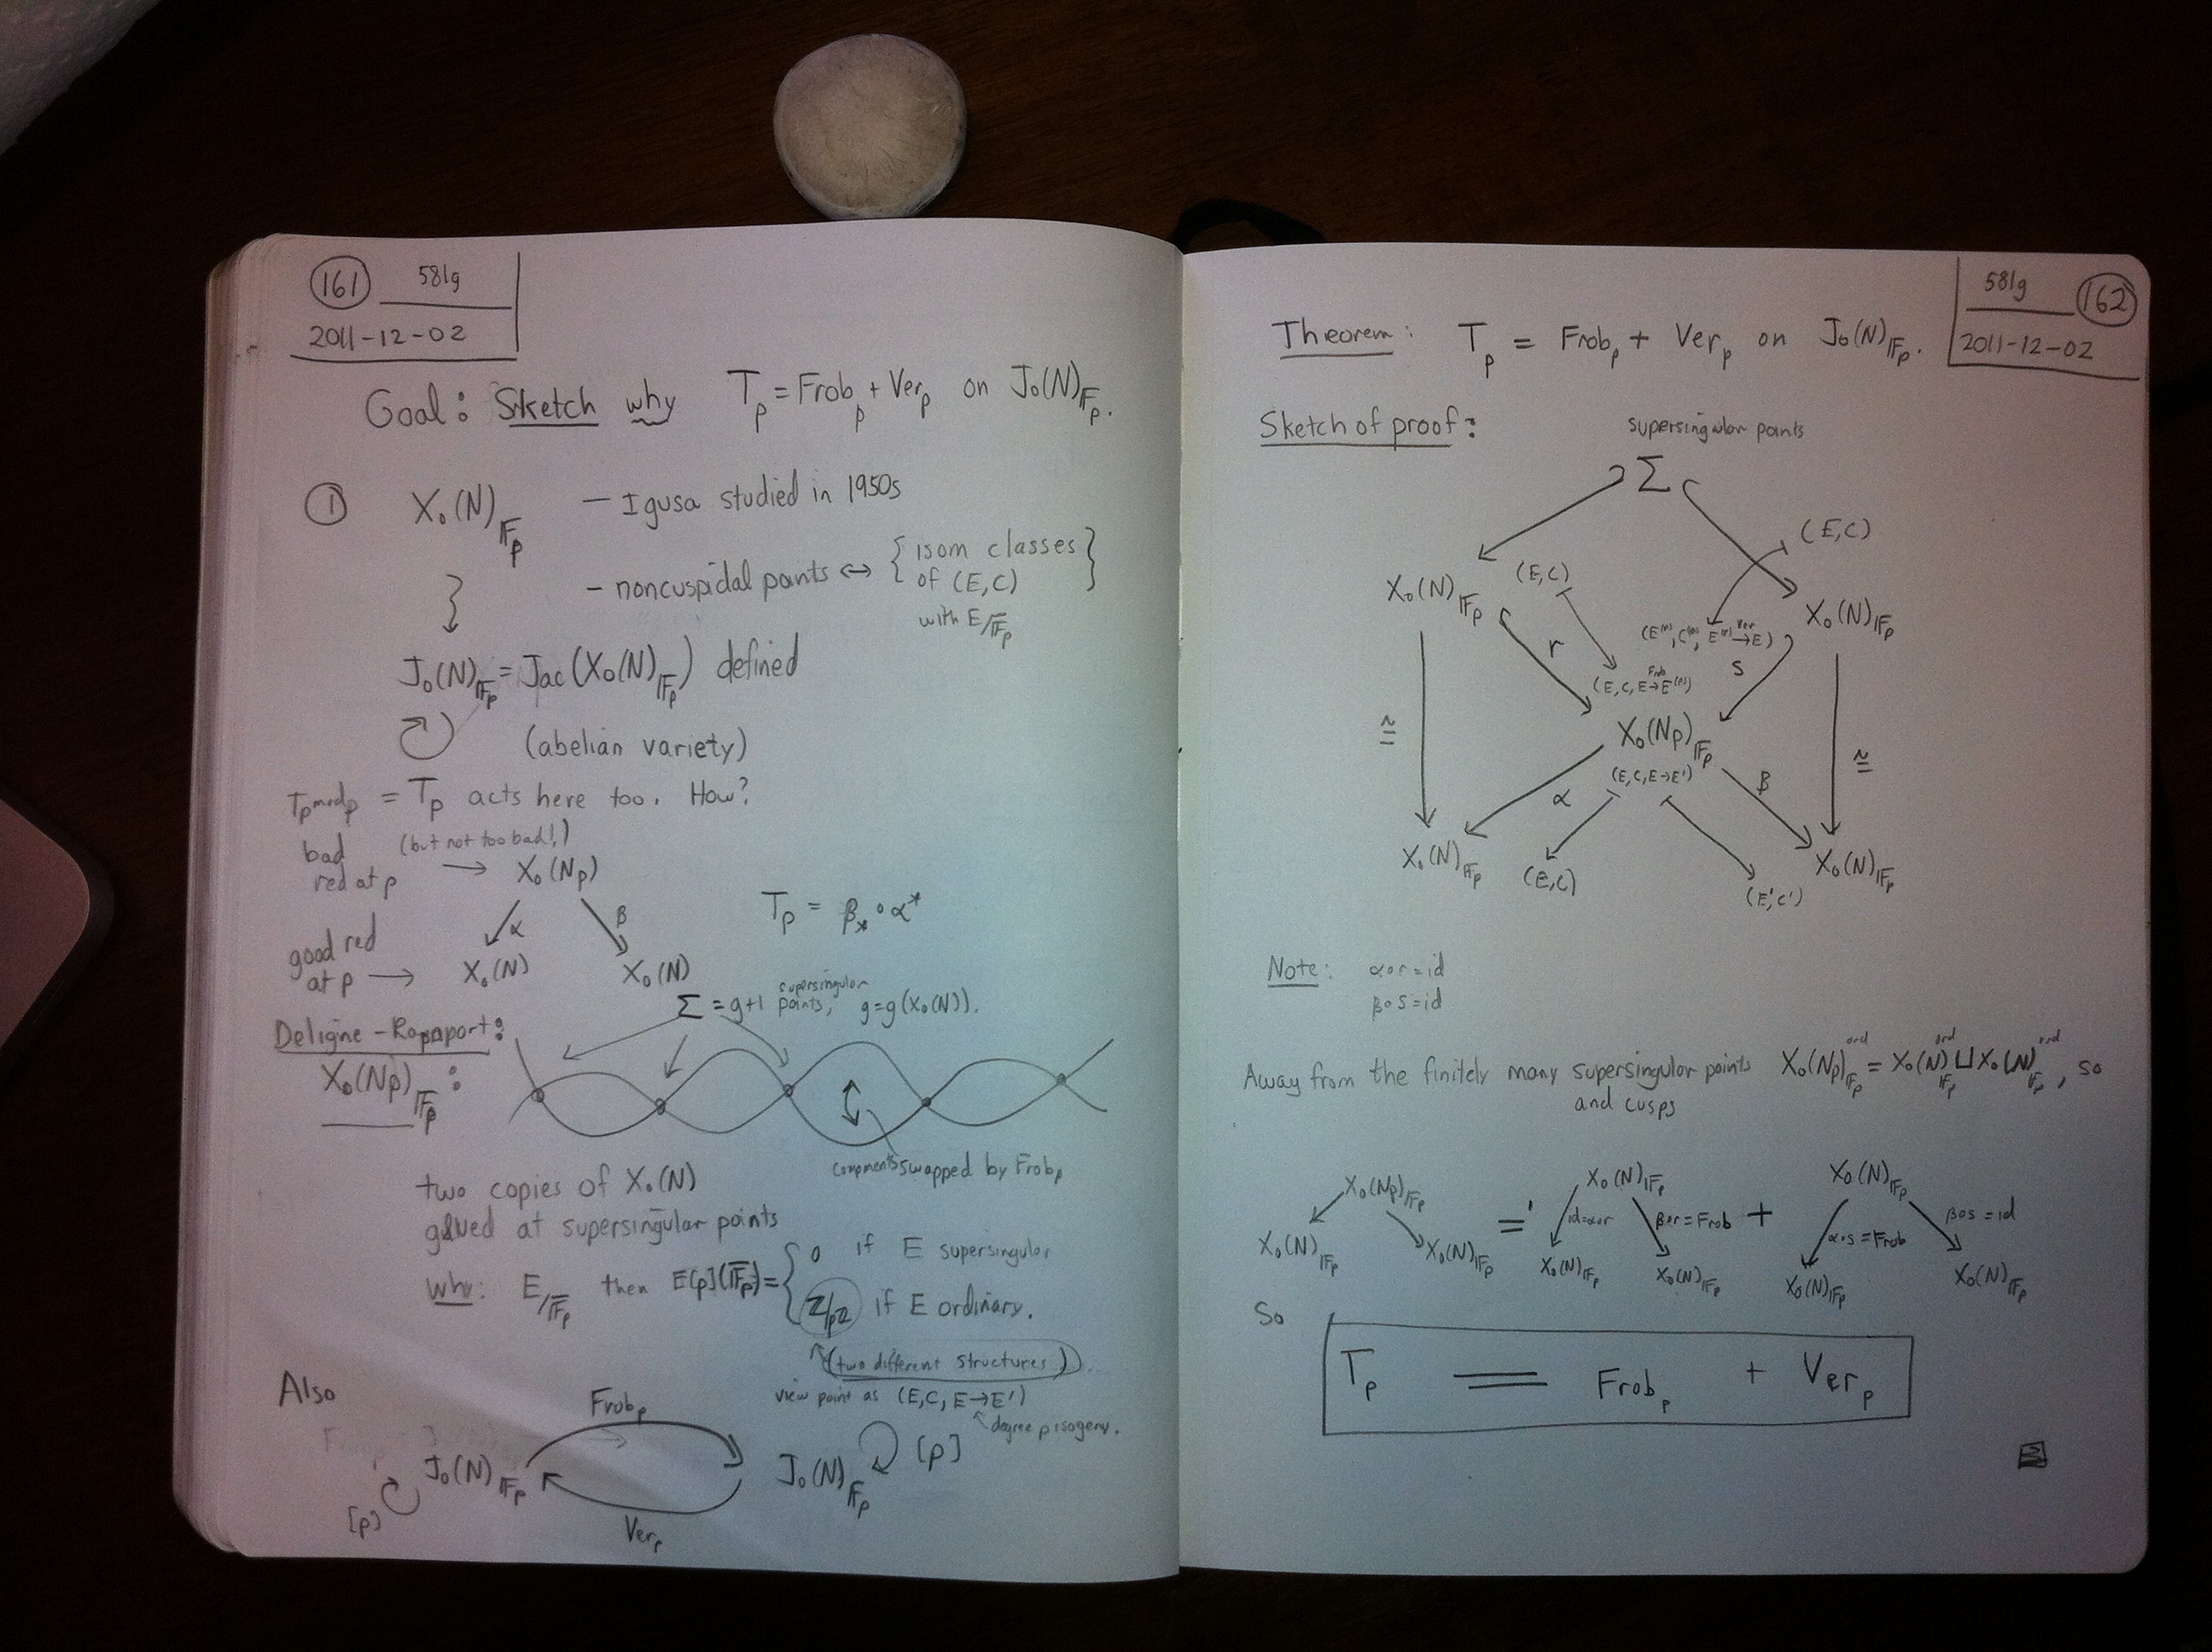 161 581g
2011-12-02
Goal: Sketch why T_p = Frob_p + Ver_p on J₀(N)_𝔽p.
① X₀(N)_𝔽p — Igusa studied in 1950s
– noncuspidal points ↔ { isom classes
of (E,C)
with E/𝔽̄p }
J₀(N)_𝔽p = Jac(X₀(N)_𝔽p) defined
(abelian variety)
T_p mod p = T_p acts here too. How?
bad (but not too bad!)
red at p → X₀(Np)
α β T_p = β_* ∘ α^*
good red
at p → X₀(N) X₀(N)
Σ = g+1 supersingular points, g=g(X₀(N)).
Deligne-Rapaport:
X₀(Np)_𝔽p :
components swapped by Frob_p
two copies of X₀(N)
glued at supersingular points
Why: E/𝔽̄p then E[p](𝔽̄p) = { 0 if E supersingular
ℤ/pℤ if E ordinary.
(two different structures).
view point as (E,C, E→E')
degree p isogeny.
Also
Frob_p
J₀(N)_𝔽p J₀(N)_𝔽p [p]
[p]
Ver_p
581g 162
2011-12-02
Theorem: T_p = Frob_p + Ver_p on J₀(N)_𝔽p.
Sketch of proof: supersingular points
Σ
(E,C)
X₀(N)_𝔽p (E,C) X₀(N)_𝔽p
(E^(p), C^(p), E^(p) Ver→ E)
r s
(E,C,E Frob→ E^(p))
≅ X₀(Np)_𝔽p ≅
(E,C,E→E')
α β
X₀(N)_𝔽p (E,C) (E',C') X₀(N)_𝔽p
Note: α∘r=id
β∘s=id
Away from the finitely many supersingular points X₀(Np)_𝔽p^ord = X₀(N)_𝔽p^ord ⊔ X₀(N)_𝔽p^ord, so
and cusps
X₀(Np)_𝔽p X₀(N)_𝔽p X₀(N)_𝔽p
=' id=α∘r β∘r=Frob + α∘s=Frob β∘s=id
X₀(N)_𝔽p X₀(N)_𝔽p X₀(N)_𝔽p X₀(N)_𝔽p X₀(N)_𝔽p X₀(N)_𝔽p
So
T_p = Frob_p + Ver_p